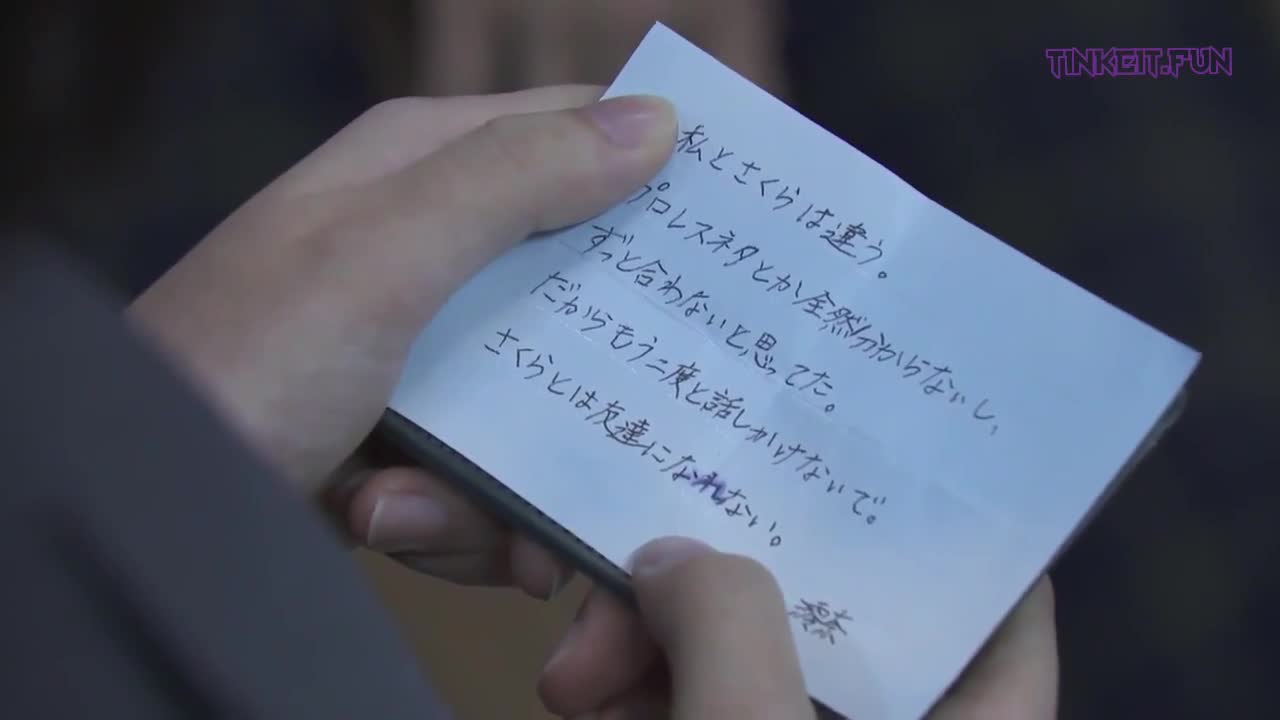 TINKEIT.FUN
私とさくらは違う。
プロレスネタとか全然分からないし、
ずっと合わないと思ってた。
だからもう二度と話しかけないで。
さくらとは友達になれない。